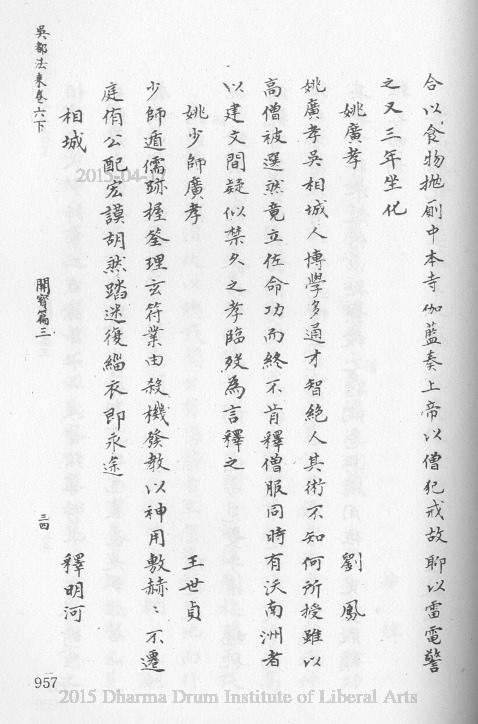 合以食物拋廁中本寺伽藍奏上帝以僧犯戒故聊以雷電警
之又三年坐化
姚廣孝 劉鳳
姚廣孝吳相城人博學多通才智絕人其術不知何所授雖以
高僧被選然竟立佐命功而終不肯釋僧服同時有沃南洲者
以建文間疑似禁久之孝臨歿為言釋之
姚少師廣孝 王世貞
少師遁儒跡握筌理玄符業由殺機發教以神用敷赫〻不遷
庭侑公配宏謨胡然踏迷復緇衣即永途
相城 釋明河
吳都法乘卷六下
開寶篇三
三四
957
2015-04-
2015 Dharma Drum Institute of Liberal Arts